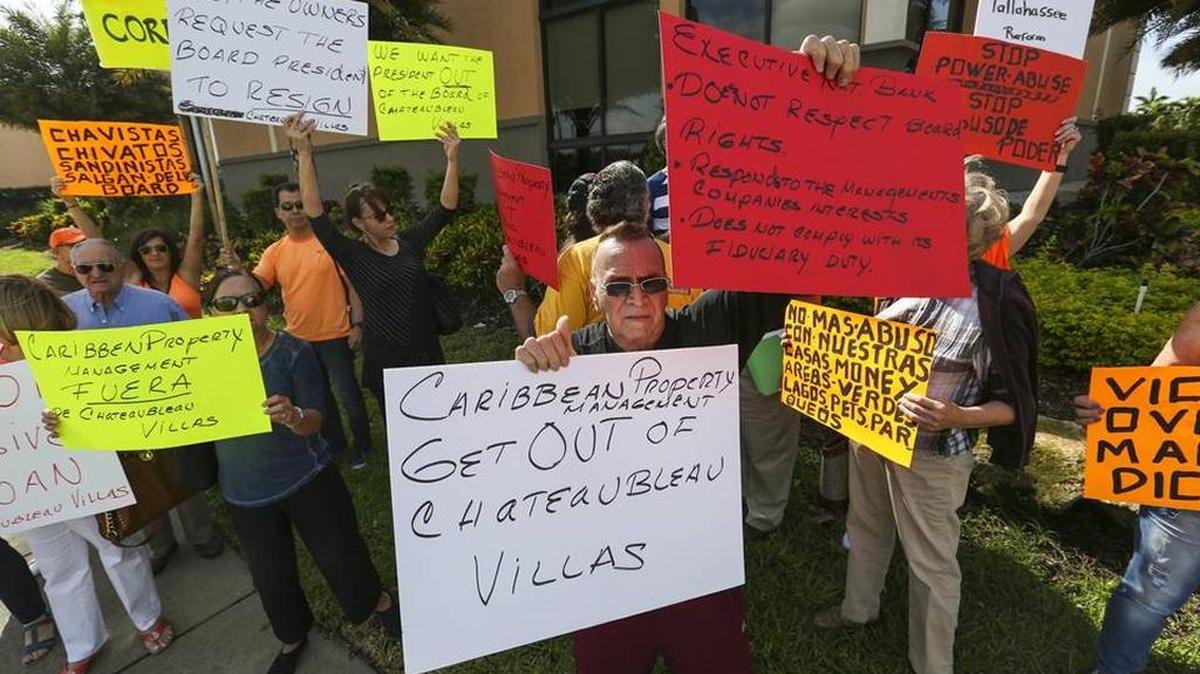 COR
THE OWNERS
REQUEST THE
BOARD PRESIDENT
TO RESIGN
CHATEAUBLEAU VILLAS
WE WANT THE
PRESIDENT OUT
OF THE BOARD OF
CHATEAUBLEAU
VILLAS
CHAVISTAS
CHIVATOS
SANDINISTAS
SALGAN DEL
BOARD
CARIBBEN PROPERTY
MANAGEMENT
FUERA
DE CHATEAUBLEAU
VILLAS
OAN
VILLAS
OUT
EXECUTIVE NAT. BANK
• DOE NOT RESPECT BOARD
RIGHTS.
• RESPONDS TO THE MANAGEMENTS
COMPANIES INTERESTS
• DOES NOT COMPLY WITH ITS
FIDUCIARY DUTY.
CARIBBEAN PROPERTY
MANAGEMENT
GET OUT OF
CHATEAUBLEAU
VILLAS
Tallahassee
Reform
STOP
POWER-ABUSE
STOP
BUSO DE
PODER
NO MAS ABUSO
CON NUESTRAS
CASAS MONEY
AREAS-VERDES
LAGOS, PETS, PAR
QUEOS
VIC
OVE
MAR
DIC